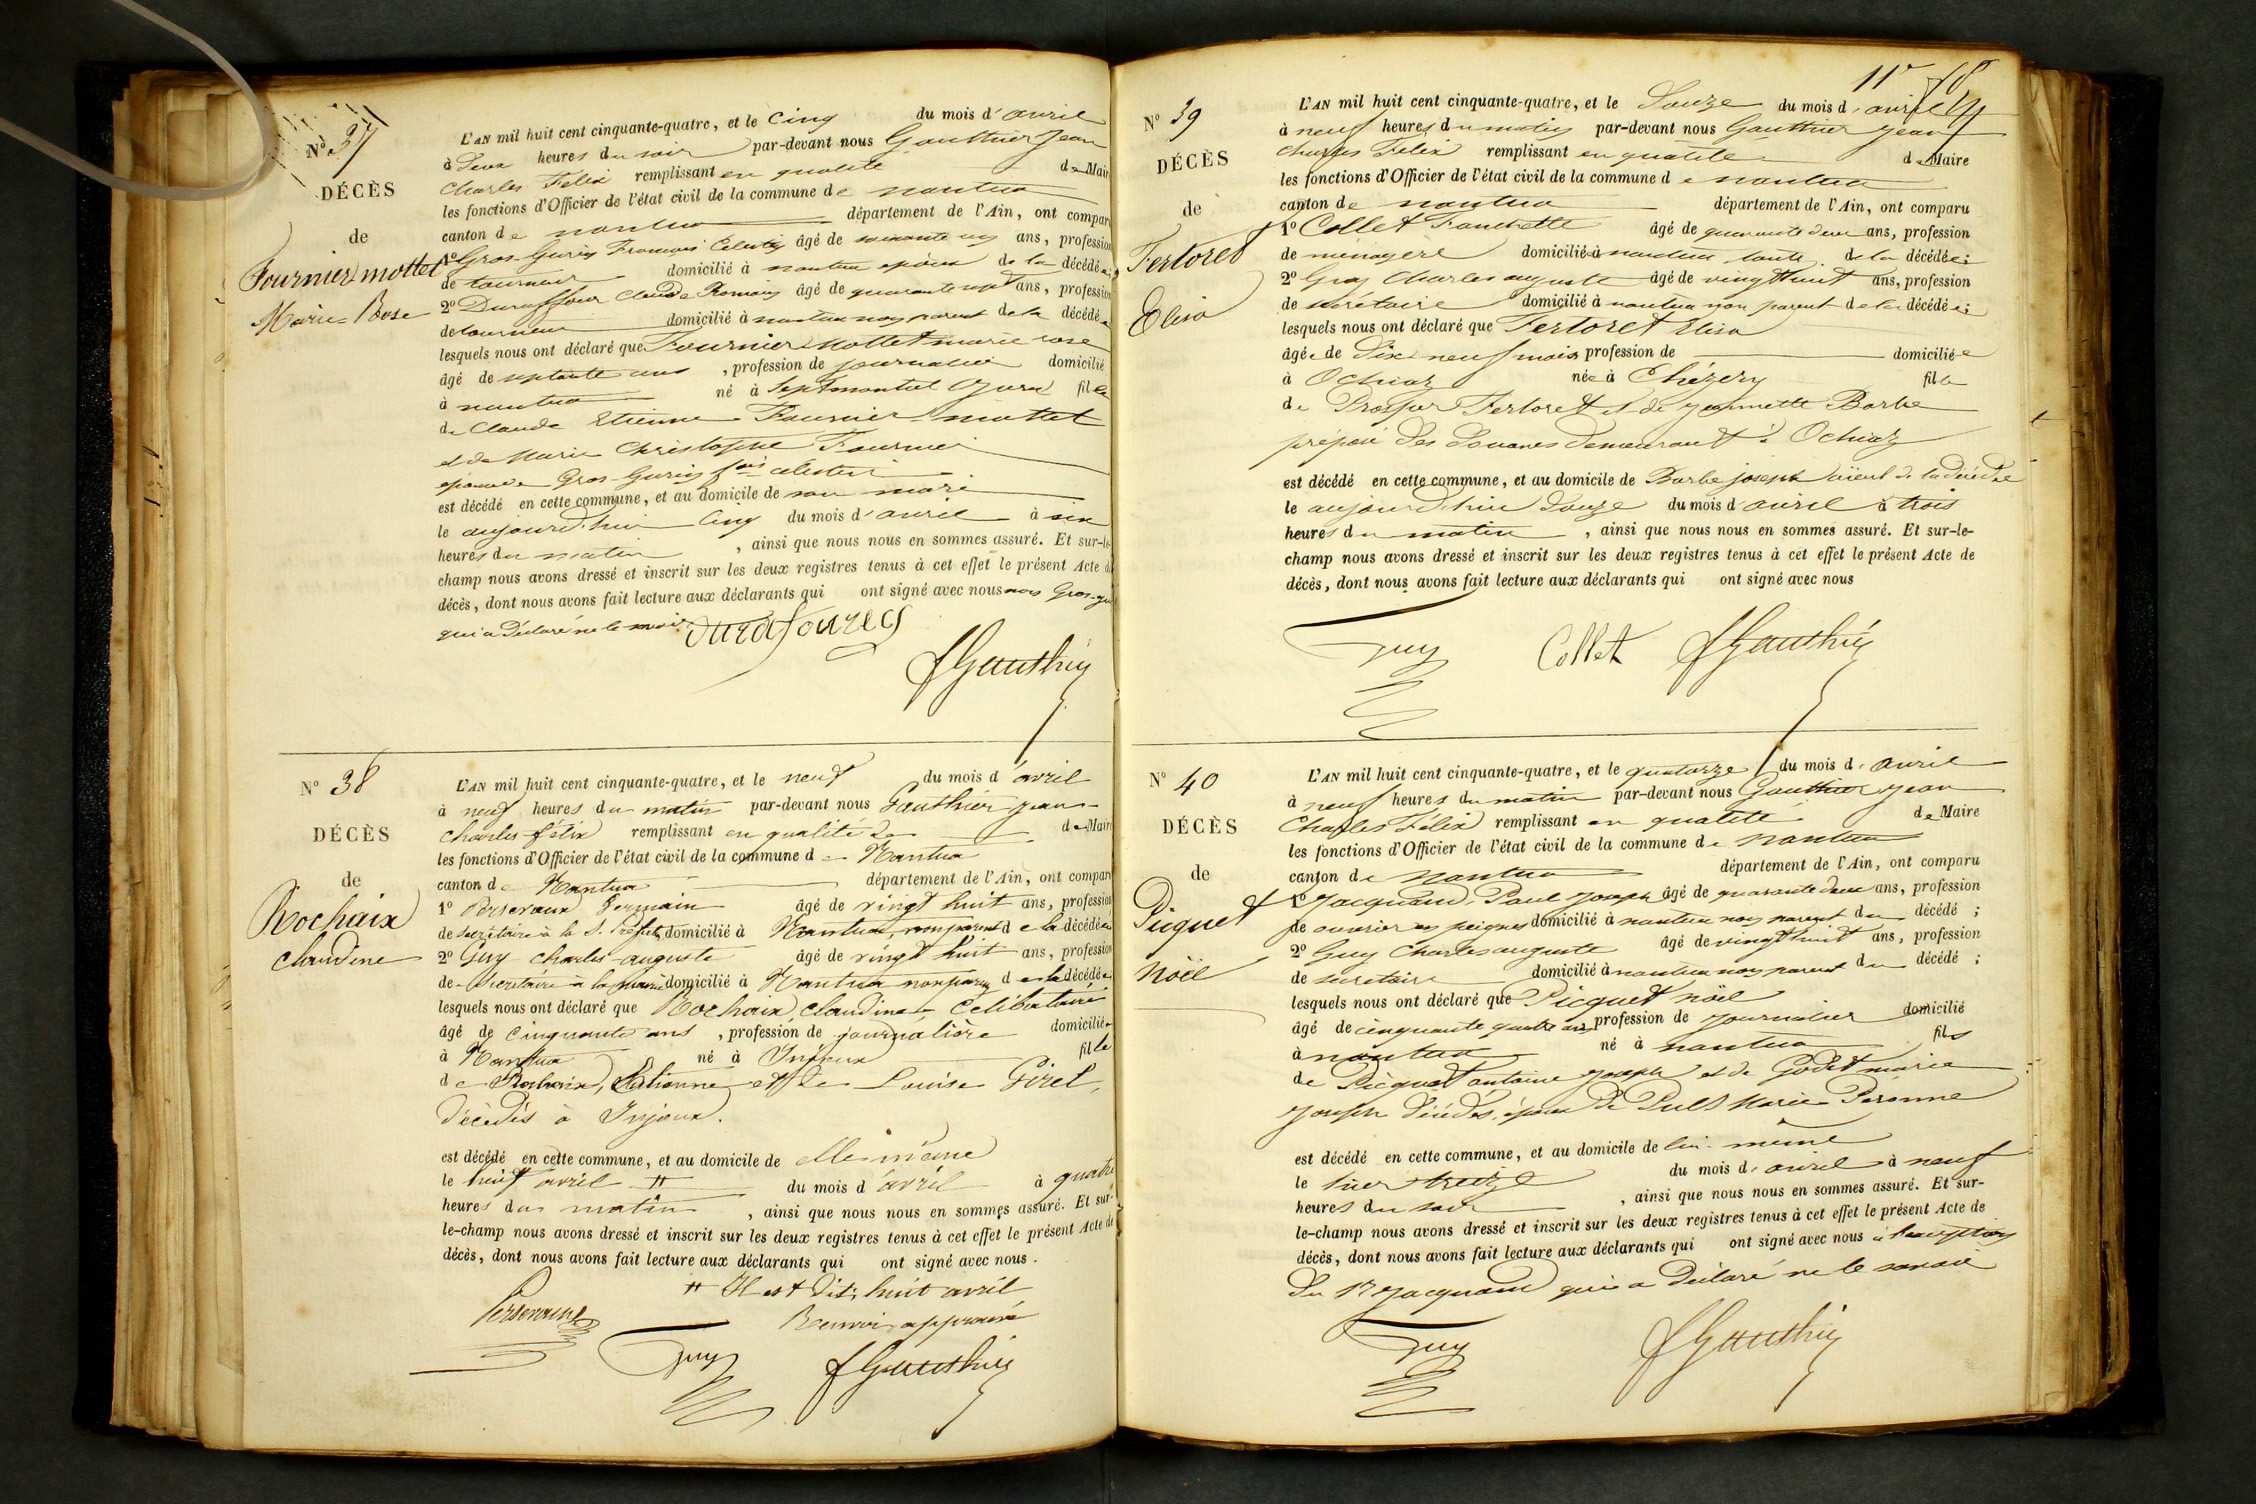 N° 37
DÉCÈS
de
Fournier mottet
Marie Rose
L'AN mil huit cent cinquante-quatre, et le cinq du mois d'avril
à deux heures du soir par-devant nous Gauthier Jean
Charles Félix remplissant en qualité de Maire
les fonctions d'Officier de l'état civil de la commune de nantua
canton de nantua département de l'Ain, ont comparu
1° Gros-Gurin François Célestin âgé de soixante ans, profession
de tourneur domicilié à nantua époux de la décédée
2° Duraffour Claude Romain âgé de quarante ans, profession
de tourneur domicilié à nantua non parent de la décédée
lesquels nous ont déclaré que Fournier Mottet marie rose
âgé de septante ans, profession de journalière domicilié
à nantua né à Septmoncel Jura fille
de Claude Etienne Fournier-mottet
et de Marie Christophe Fournier
épouse de Gros-Gurin fois célestin
est décédé en cette commune, et au domicile de son mari
le aujourd'hui cinq du mois d'avril à six
heures du matin, ainsi que nous nous en sommes assuré. Et sur-le
champ nous avons dressé et inscrit sur les deux registres tenus à cet effet le présent Acte de
décès, dont nous avons fait lecture aux déclarants qui ont signé avec nous Gros-gu
qui a déclaré ne le
durafourcg
fGauthier
N° 38
DÉCÈS
de
Rochaix
claudine
L'AN mil huit cent cinquante-quatre, et le neuf du mois d'avril
à neuf heures du matin par-devant nous Gauthier jean-
charles-félix remplissant en qualité de de Maire
les fonctions d'Officier de l'état civil de la commune de Nantua
canton de Nantua département de l'Ain, ont comparu
1° Perseraux Germain âgé de vingt huit ans, profession
de secrétaire à la S. Préfete domicilié à Nantua, non parent de la décédée
2° Guy charles-auguste âgé de vingt huit ans, profession
de secrétaire à la mairie domicilié à Nantua non parent de la décédée
lesquels nous ont déclaré que Rochaix, claudine, célibataire
âgé de cinquante ans, profession de journalière domiciliée
à Nantua né à Injoux fille
de Rochaix, Etienne et de Louise Girel,
décédés à Injoux.
est décédé en cette commune, et au domicile de elle-même
le huit avril # du mois d'avril à quatre
heures du matin, ainsi que nous nous en sommes assuré. Et sur-
le-champ nous avons dressé et inscrit sur les deux registres tenus à cet effet le présent Acte de
décès, dont nous avons fait lecture aux déclarants qui ont signé avec nous.
# Il est dit: huit avril
Renvoi approuvé
Perseraux
Guy
fGauthier
11e 78
N° 39
DÉCÈS
de
Fertoret
Elisa
L'AN mil huit cent cinquante-quatre, et le Douze du mois d'avril
à neuf heures du matin par-devant nous Gauthier jean
Charles Félix remplissant en qualité de Maire
les fonctions d'Officier de l'état civil de la commune de nantua
canton de nantua département de l'Ain, ont comparu
1° Collet Fanchette âgé de quarante deux ans, profession
de ménagère domiciliée à nantua tante de la décédée;
2° Guy Charles auguste âgé de vingt huit ans, profession
de secrétaire domicilié à nantua non parent de la décédée;
lesquels nous ont déclaré que Fertoret Elisa
âgée de Dix neuf mois profession de domiciliée
à Ochiaz née à Chézery fille
de Prosper Fertoret et de Jeannette Barbe
préposé des Douanes demeurant à Ochiaz
est décédé en cette commune, et au domicile de Barbe joseph aïeul de la décédée
le aujourd'hui douze du mois d'avril à trois
heures du matin, ainsi que nous nous en sommes assuré. Et sur-le-
champ nous avons dressé et inscrit sur les deux registres tenus à cet effet le présent Acte de
décès, dont nous avons fait lecture aux déclarants qui ont signé avec nous
Guy Collet fGauthier
N° 40
DÉCÈS
de
Picquet
Nöel
L'AN mil huit cent cinquante-quatre, et le quatorze du mois d'avril
à neuf heures du matin par-devant nous Gauthier jean
Charles Félix remplissant en qualité de Maire
les fonctions d'Officier de l'état civil de la commune de nantua
canton de nantua département de l'Ain, ont comparu
1° Jacquand Paul Joseph âgé de quarante deux ans, profession
de ouvrier en peignes domicilié à nantua non parent du décédé;
2° Guy Charles auguste âgé de vingt huit ans, profession
de secrétaire domicilié à nantua non parent du décédé;
lesquels nous ont déclaré que Picquet nöel
âgé de cinquante quatre ans profession de journalier domicilié
à nantua né à nantua fils
de Picquet antoine joseph et de Godet marie
joseph décédés, époux de Pull Marie Péronne
est décédé en cette commune, et au domicile de lui-même
le hier treize du mois d'avril à neuf
heures du soir, ainsi que nous nous en sommes assuré. Et sur-
le-champ nous avons dressé et inscrit sur les deux registres tenus à cet effet le présent Acte de
décès, dont nous avons fait lecture aux déclarants qui ont signé avec nous à l'exception
du Sr Jacquand qui a déclaré ne le savoir
Guy fGauthier